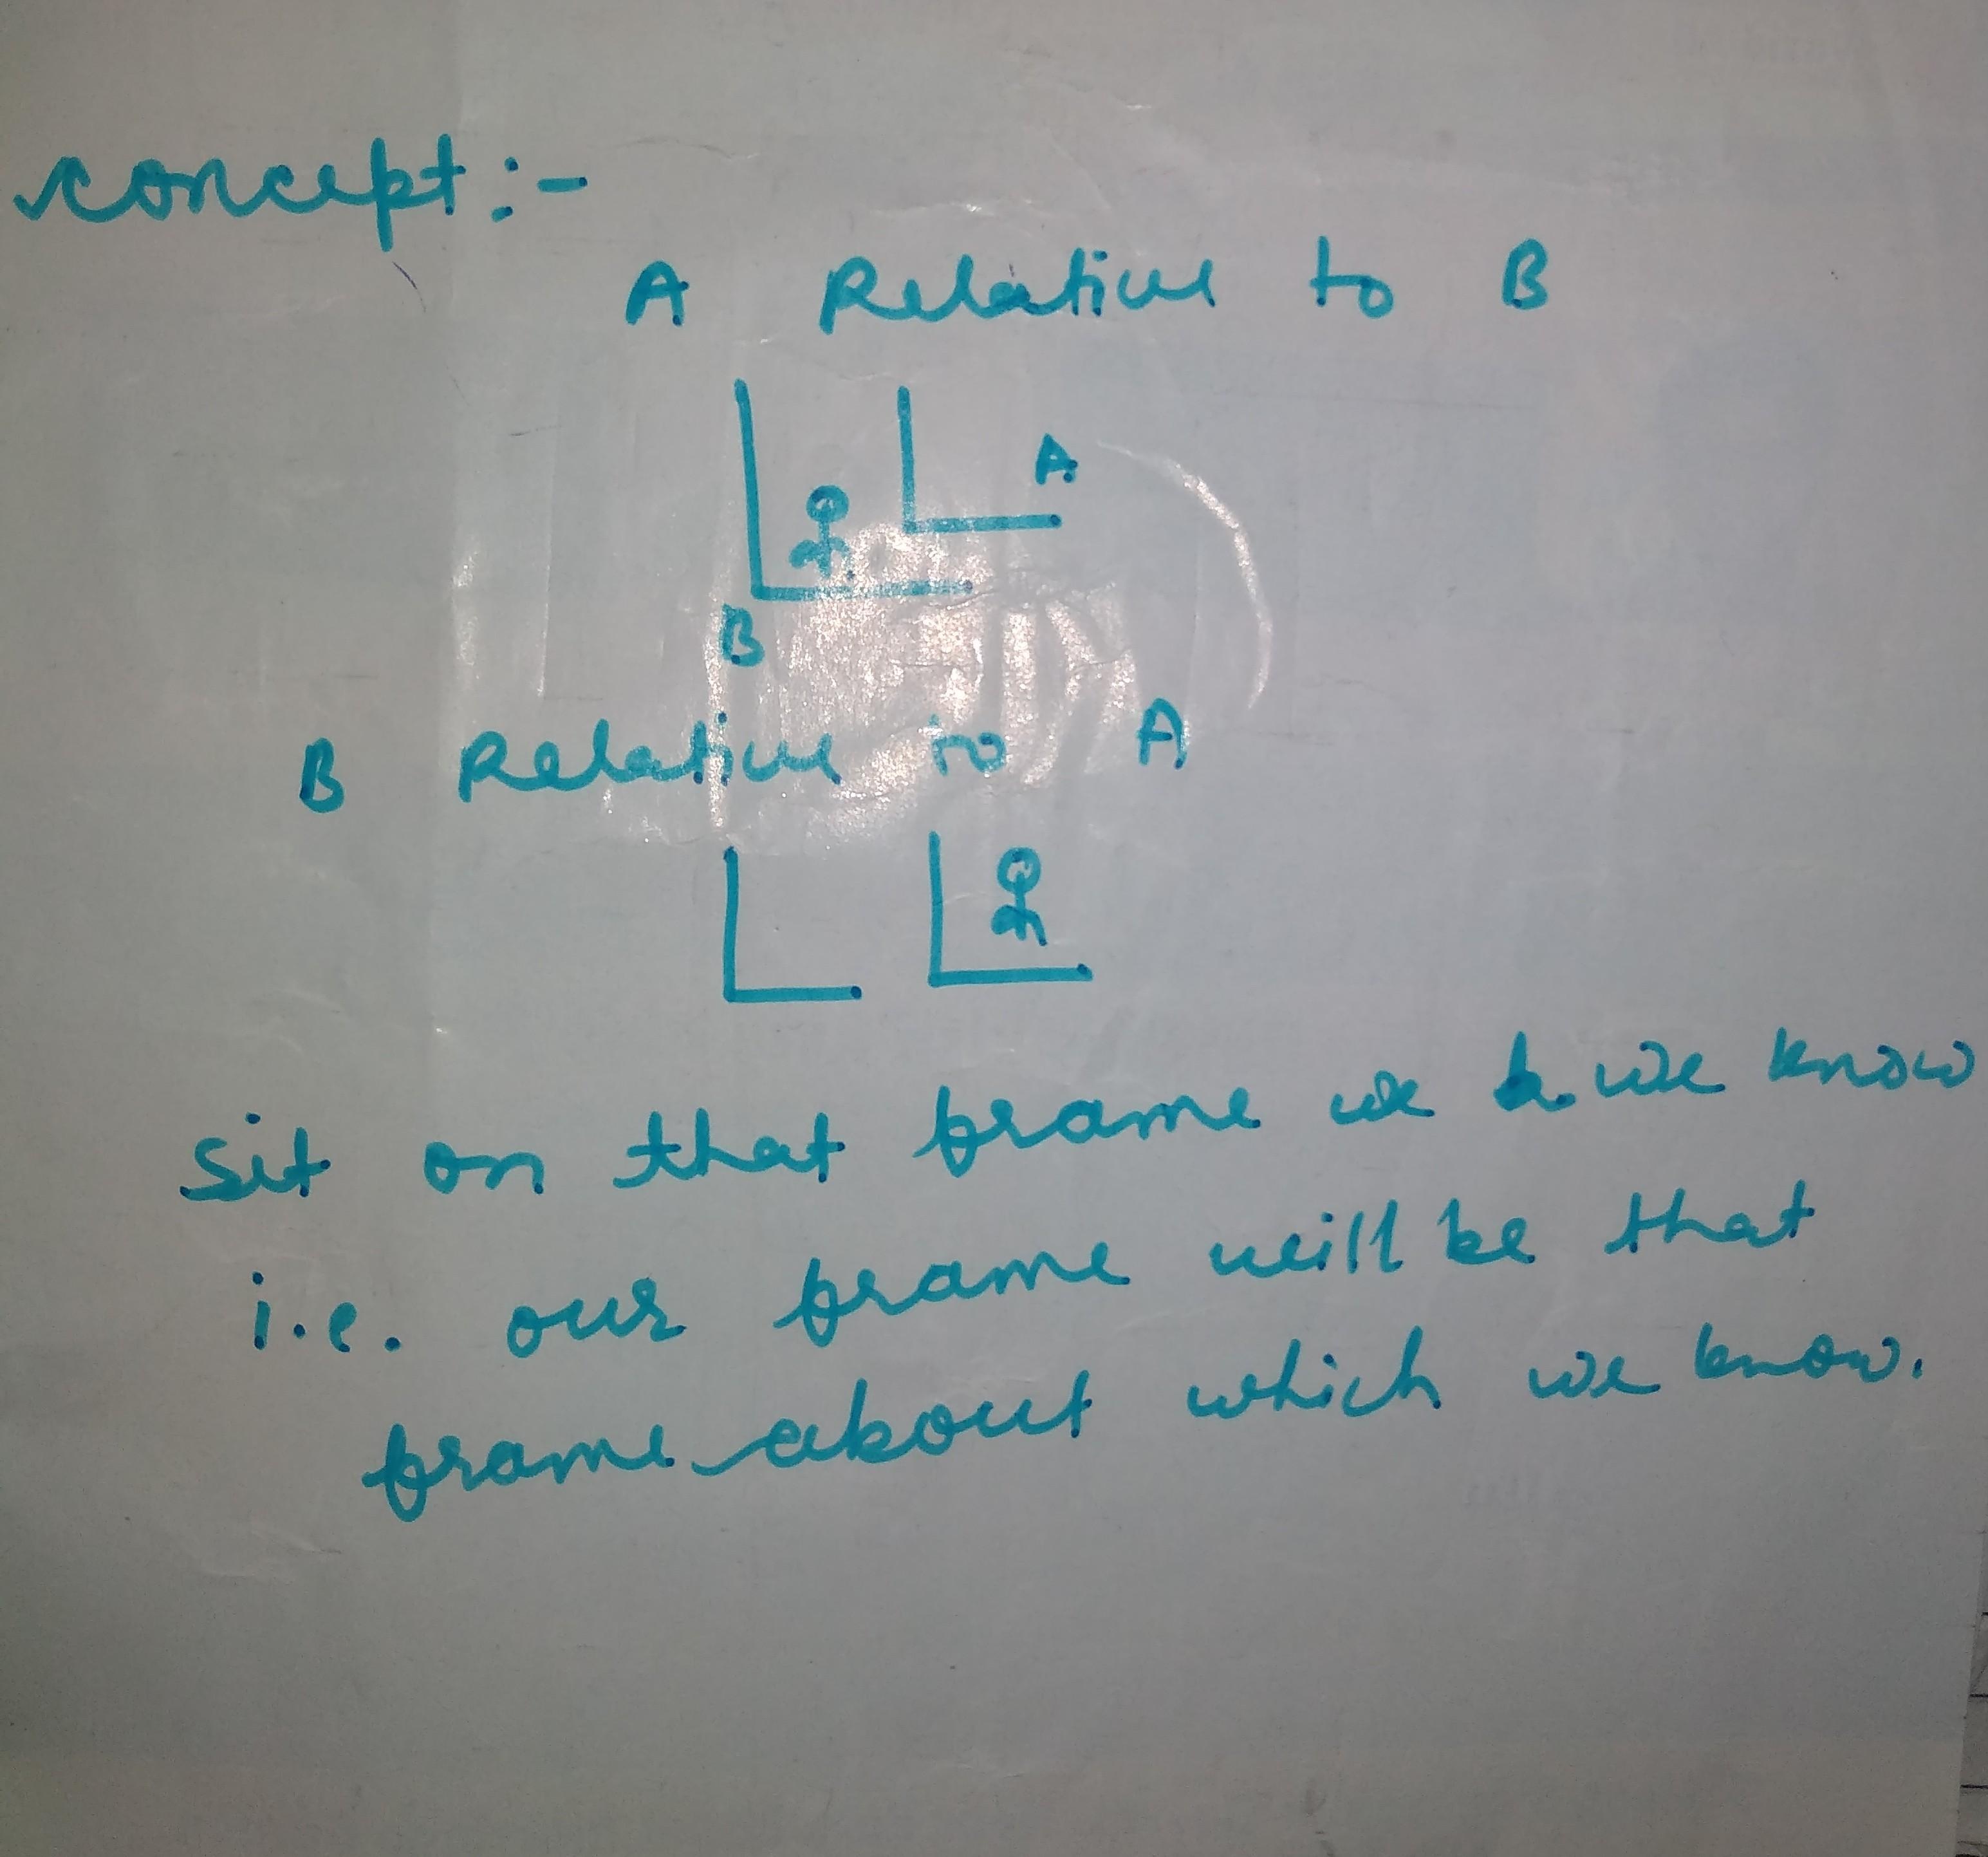 concept:-
A Relative to B
A
B
B Relative to A
sit on that frame we we know
i.e. our frame will be that
frame about which we know.